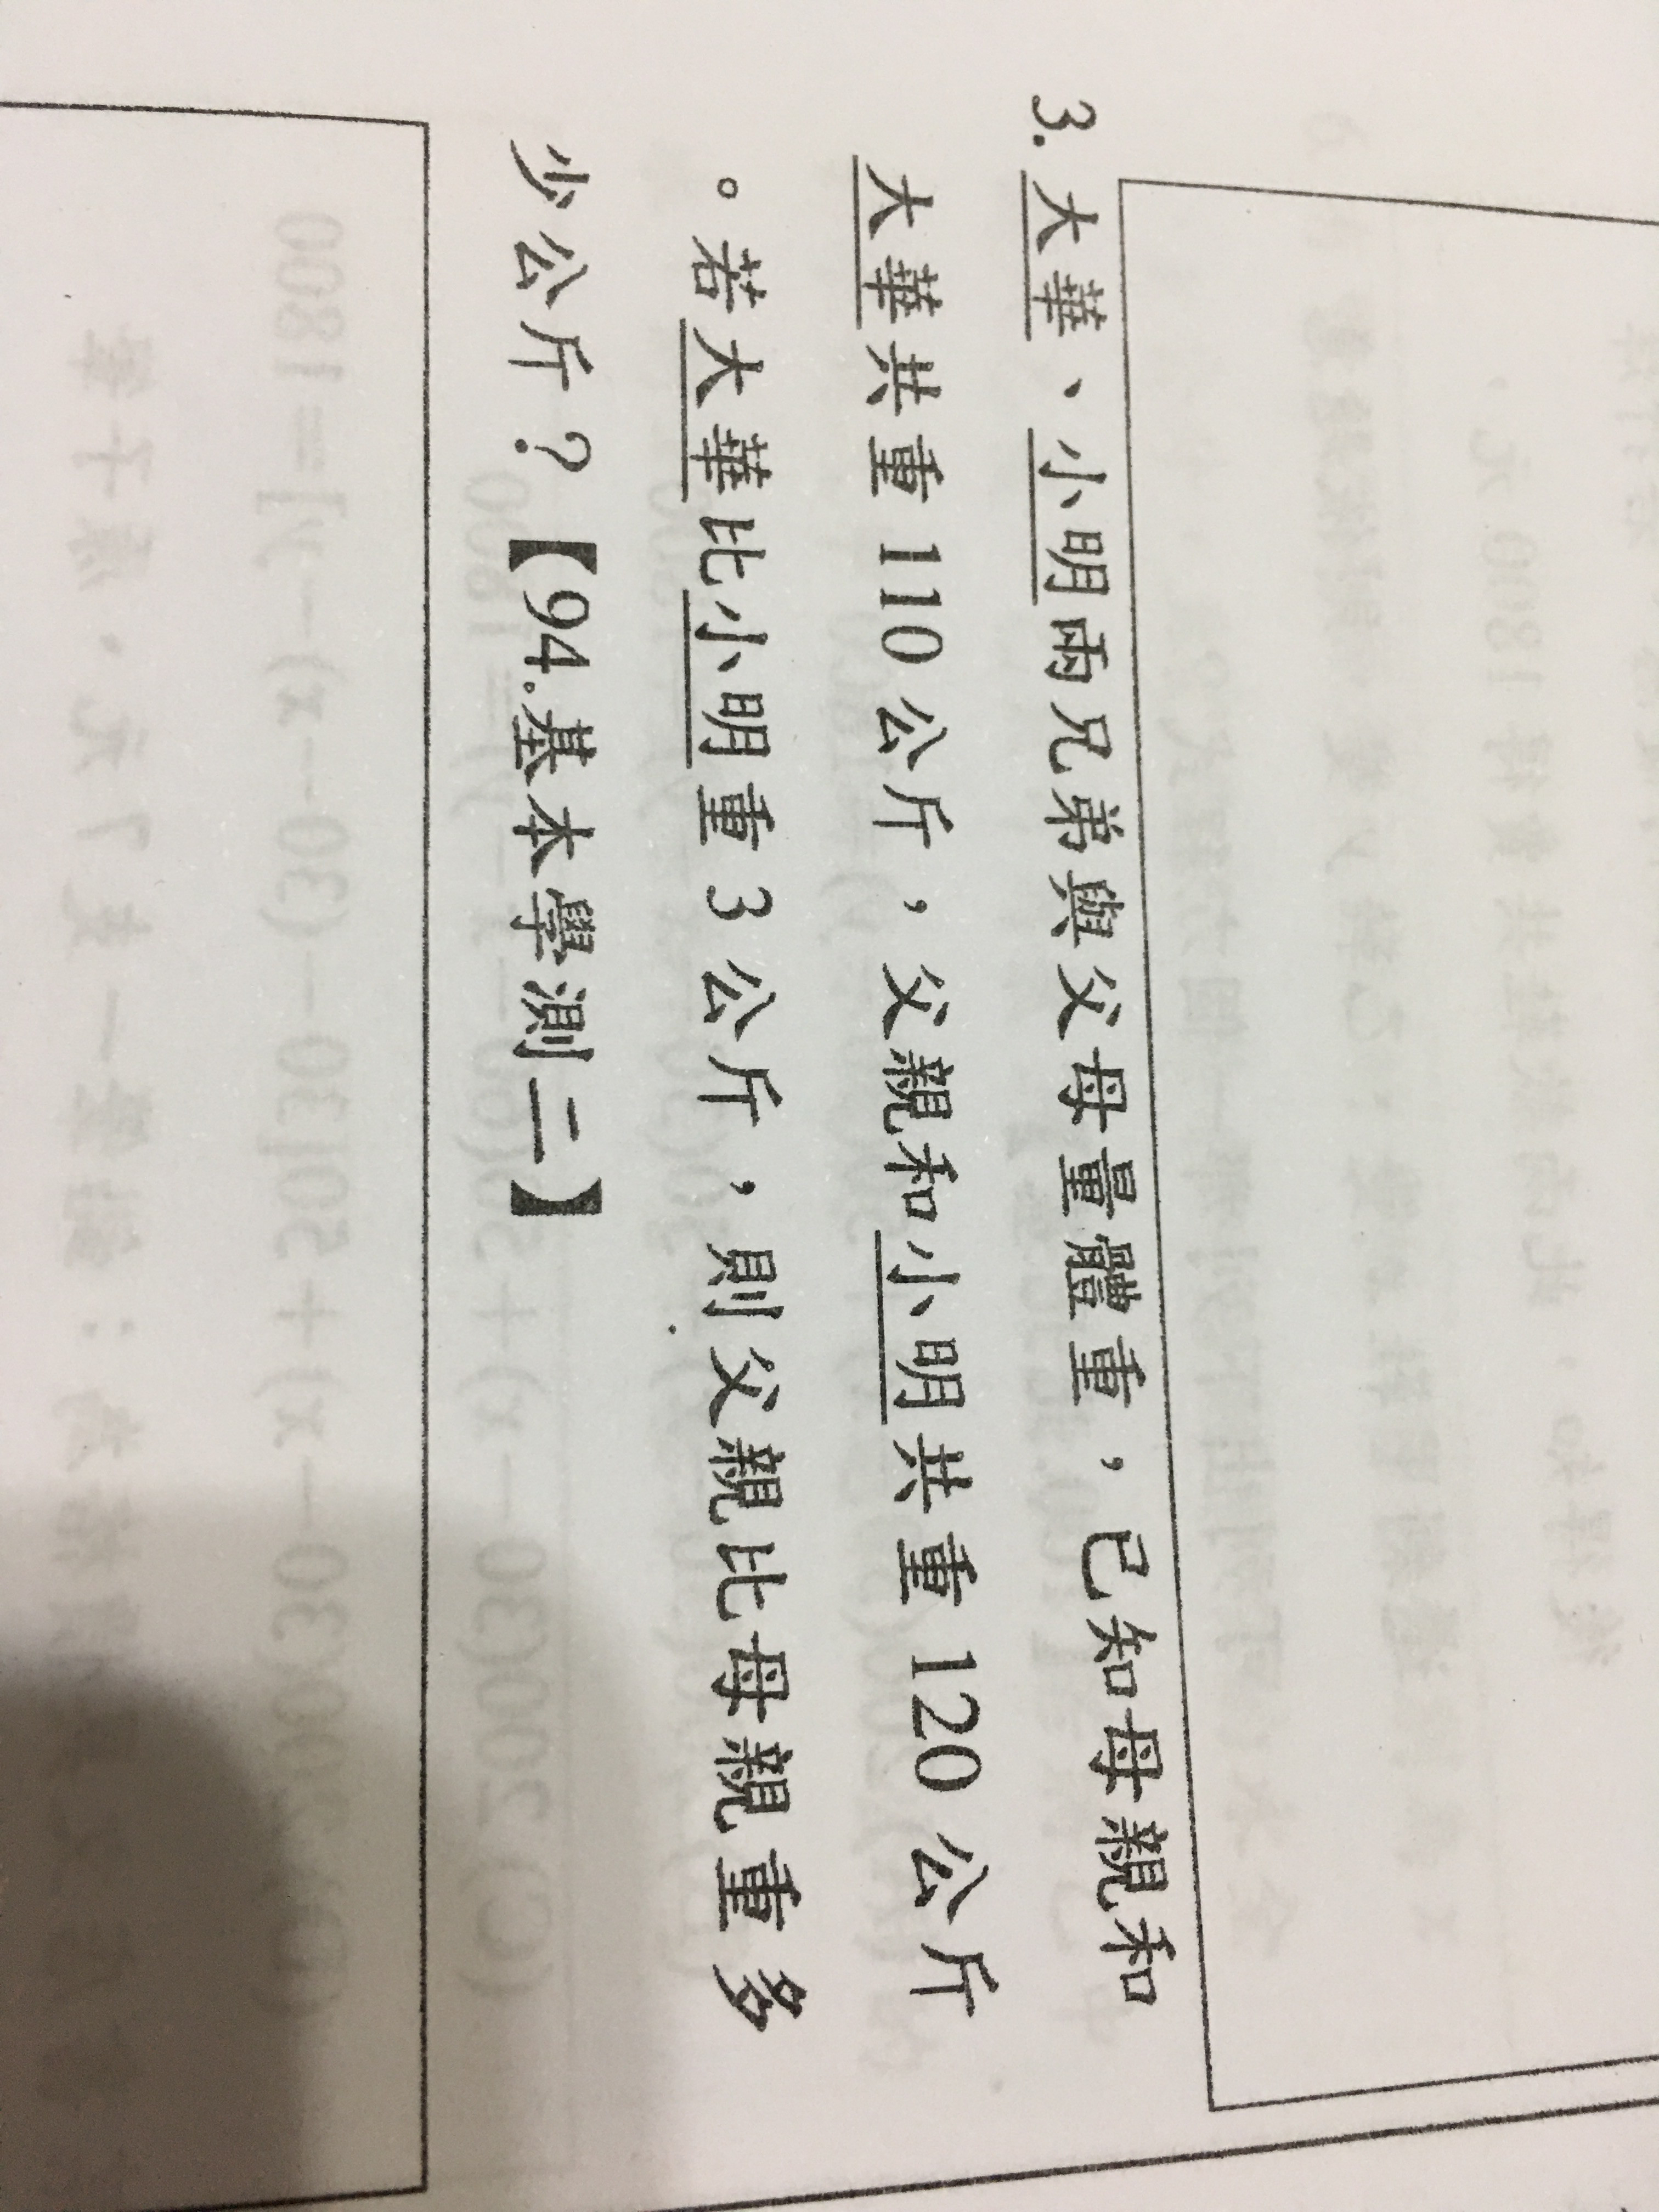 3. 大華、小明兩兄弟與父母量體重，已知母親和
大華共重 110 公斤，父親和小明共重 120 公斤
。若大華比小明重 3 公斤，則父親比母親重多
少公斤？【94.基本學測二】